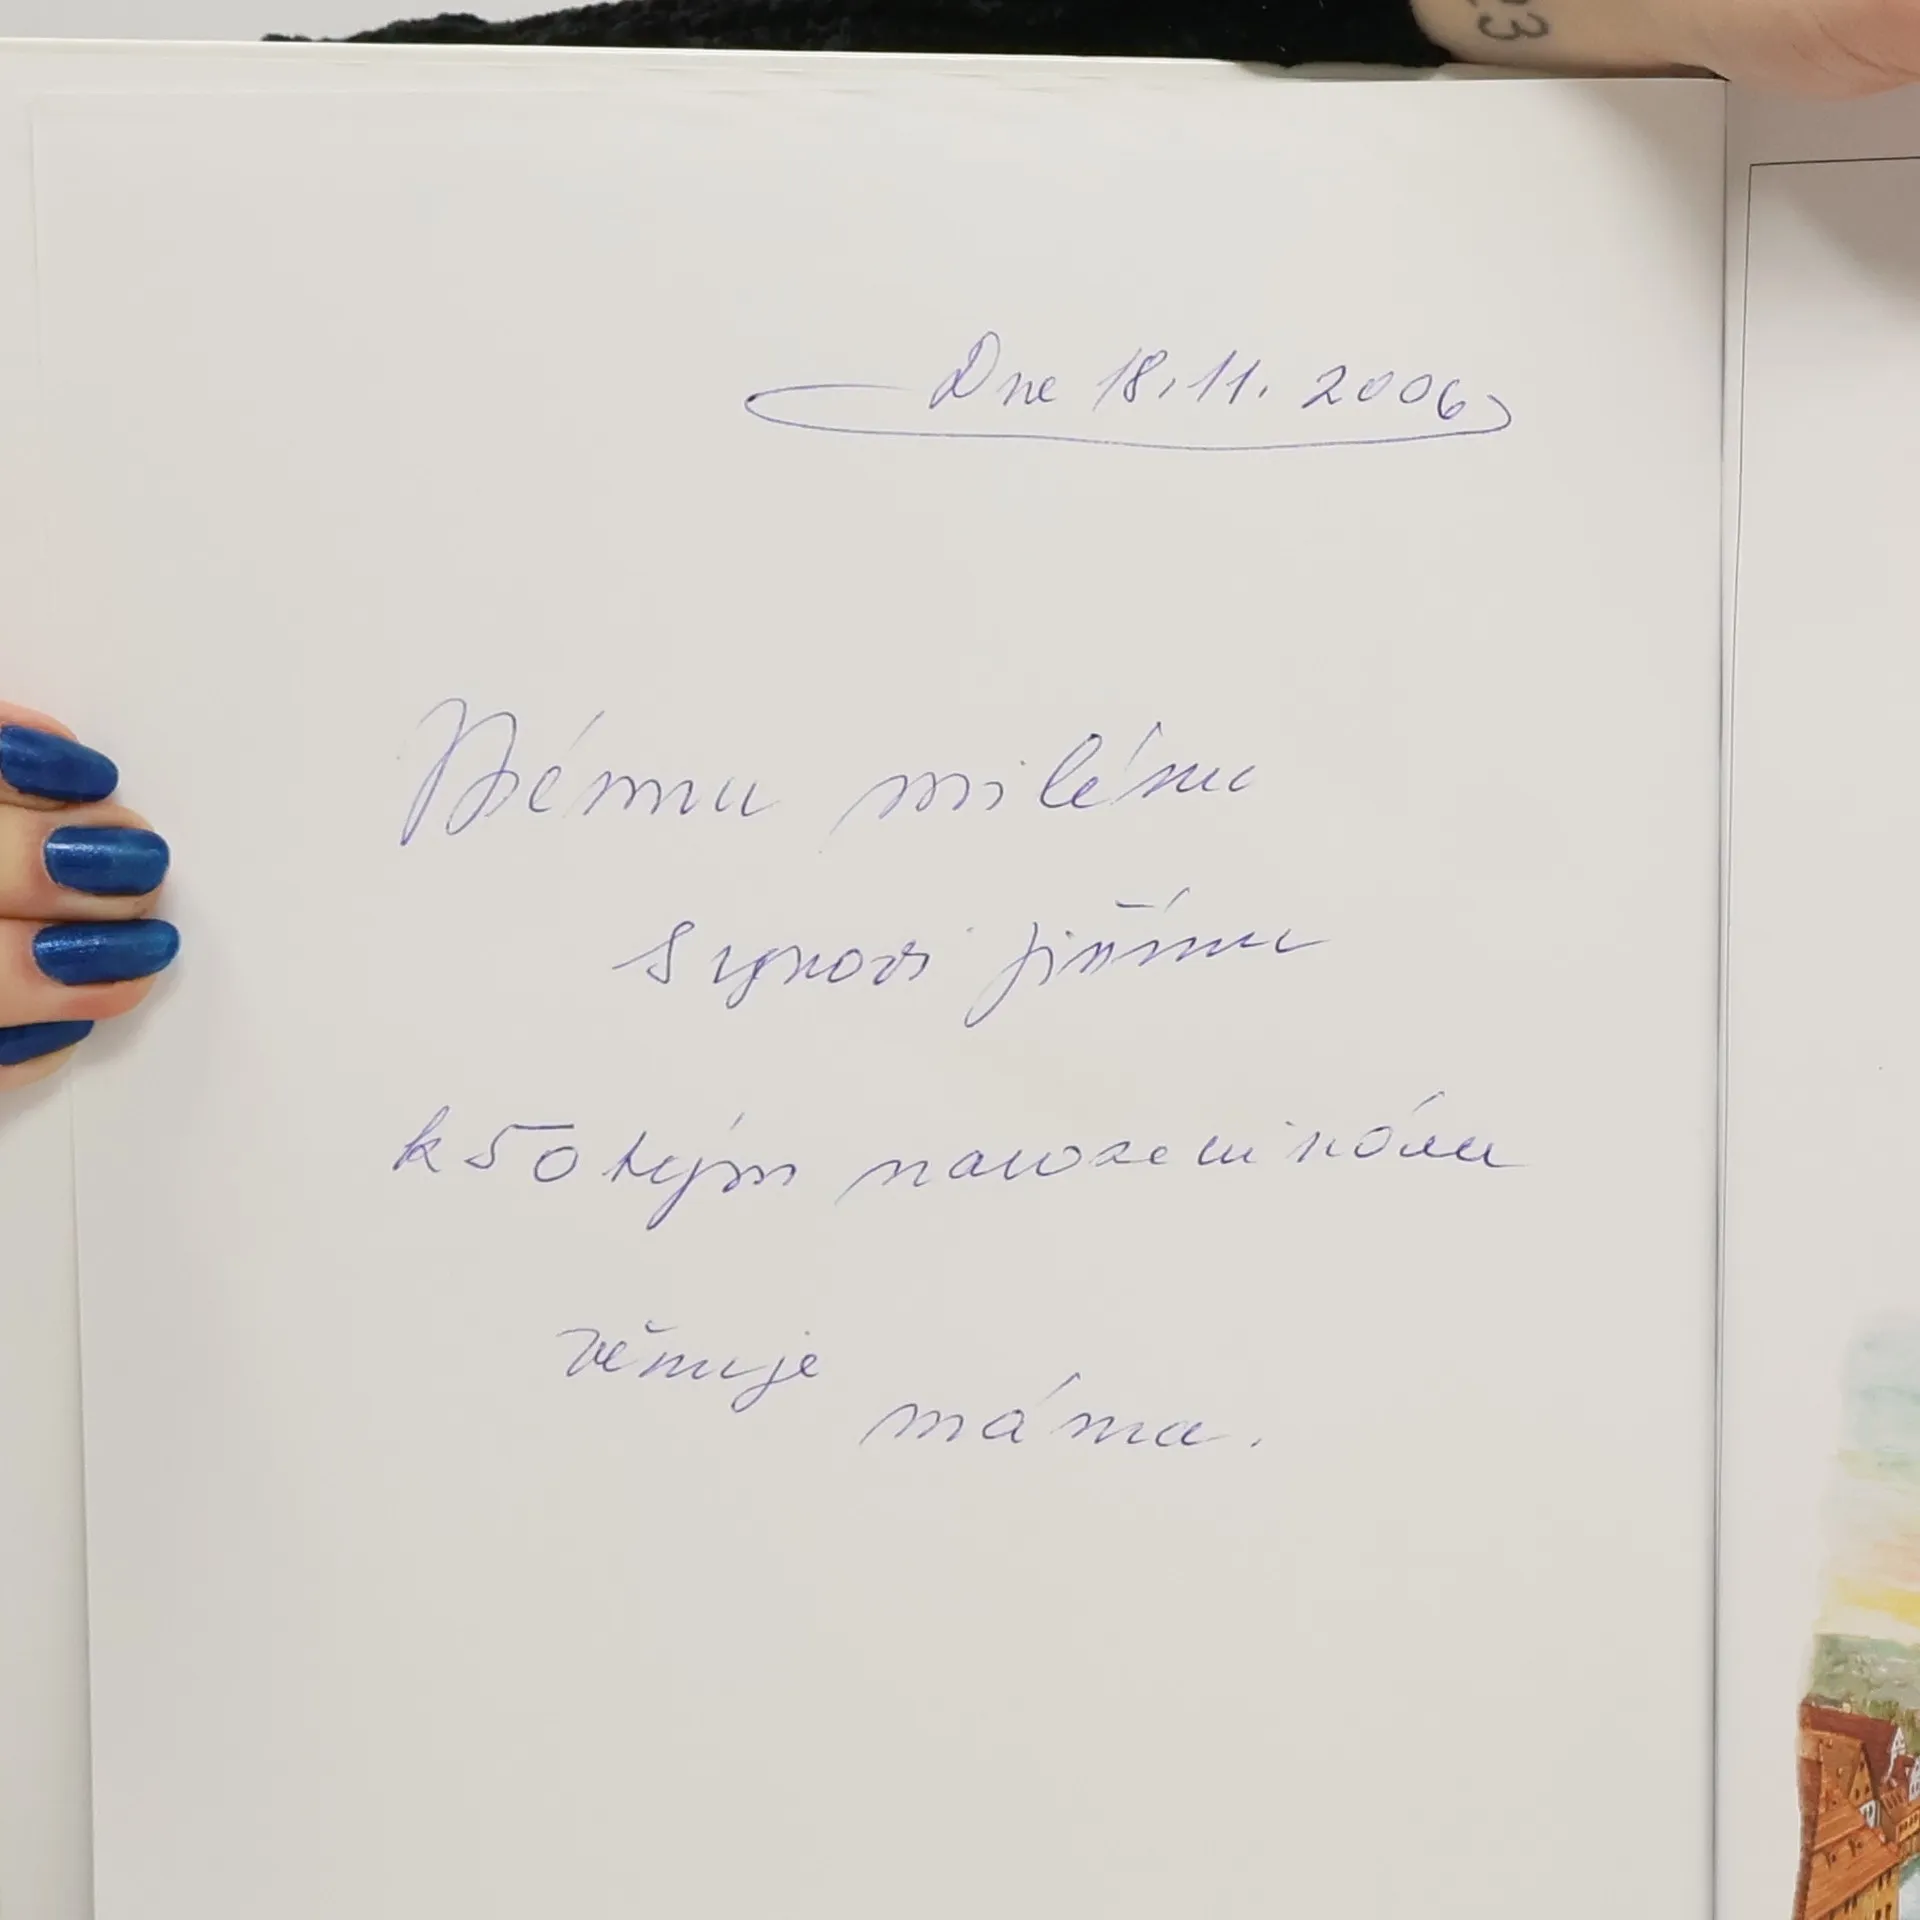 23
Dne 18.11.2006
Mému milému
synovi jiřímu
k 50 tým narozeninám
věnuje
máma.